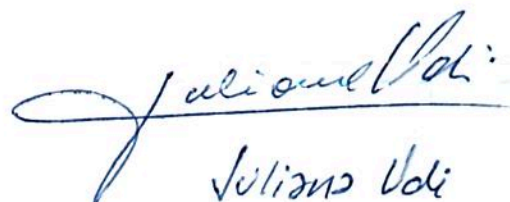 Juliana Udi
Juliana Udi